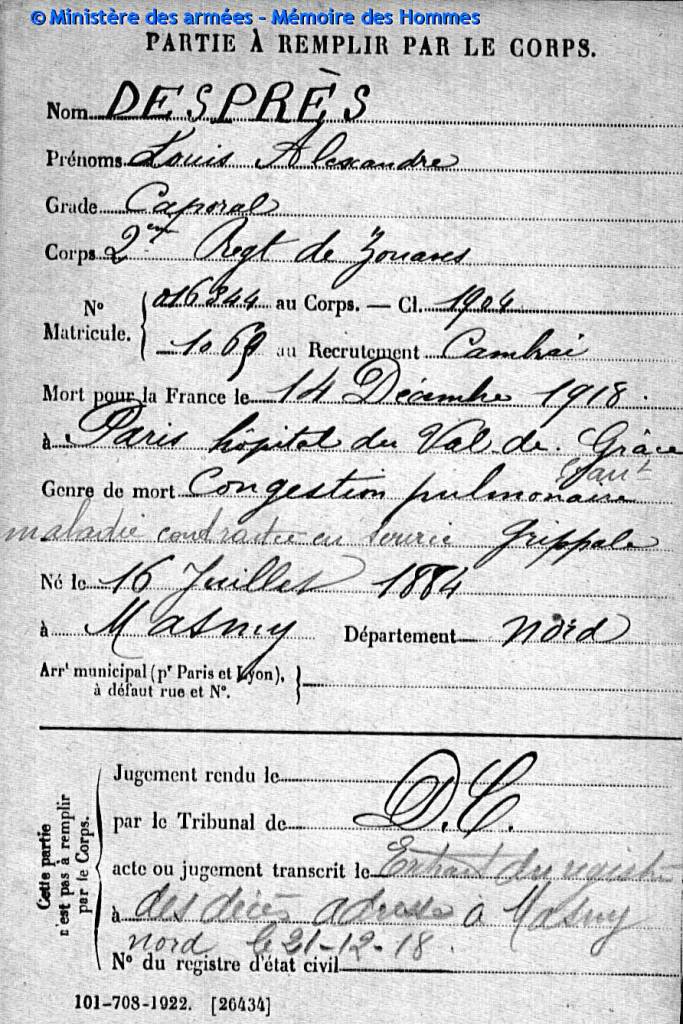 © Ministère des armées - Mémoire des Hommes
PARTIE À REMPLIR PAR LE CORPS.
Nom DESPRÈS
Prénoms Louis Alexandre
Grade Caporal
Corps 2em Regt de Zouaves
N° Matricule. 016344 au Corps. — Cl. 1904
1069 au Recrutement Cambrai
Mort pour la France le 14 Décembre 1918.
à Paris hôpital du Val-de-Grâce
Genre de mort Congestion pulmonaire
maladie contractée en service Grippale
Né le 16 Juillet 1884
à Masny Département Nord
Arrt municipal (pr Paris et Lyon),
à défaut rue et N°.
Cette partie n'est pas à remplir par le Corps.
Jugement rendu le
par le Tribunal de D.C.
acte ou jugement transcrit le Extrait du registre
à des décès adressé à Masny
nord le 21-12-18.
N° du registre d'état civil
101-708-1922. [26434]